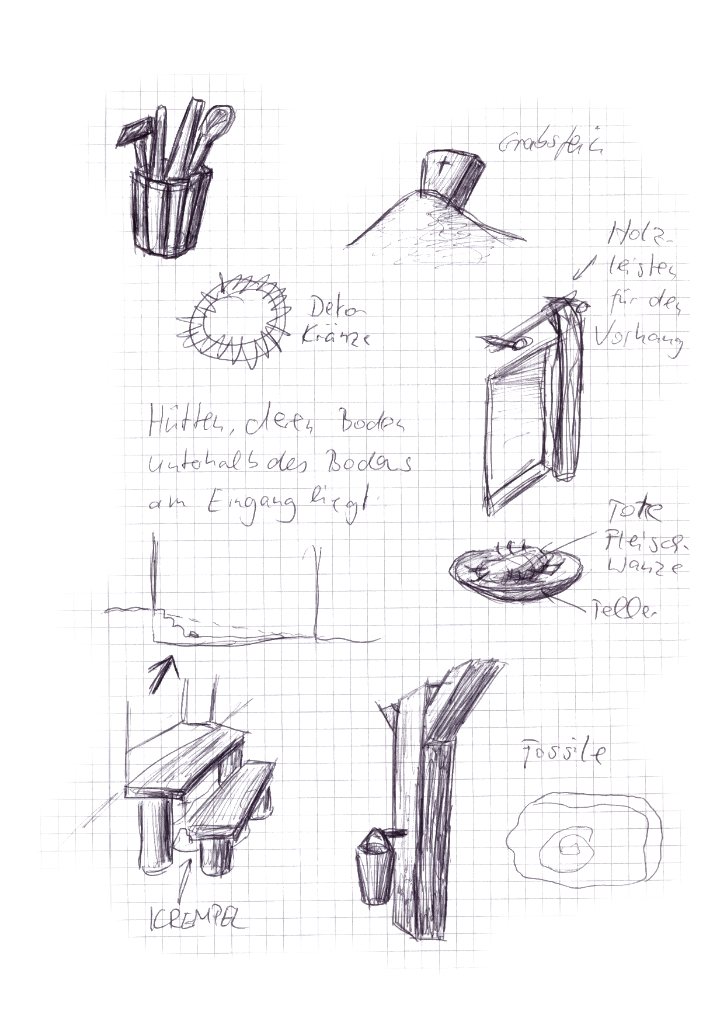 Grabstein
Holz-
leisten
für den
Vorhang
Deko
Kränze
Hütten, deren Boden
unterhalb des Bodens
am Eingang liegt.
Tote
Fleisch-
wanze
Teller
Fossile
KREMPEL